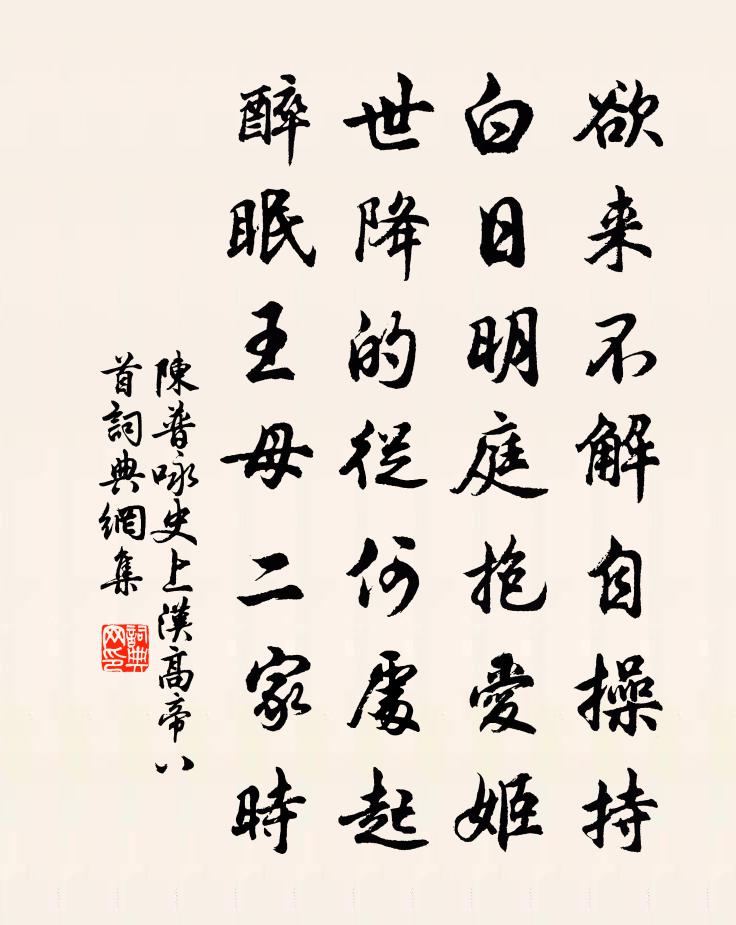 欲来不解自操持
白日明庭抱愛姬
世降的從何處起
醉眠王母二家時
陳普咏史上漢高帝八
首詞典網集
詞典网印